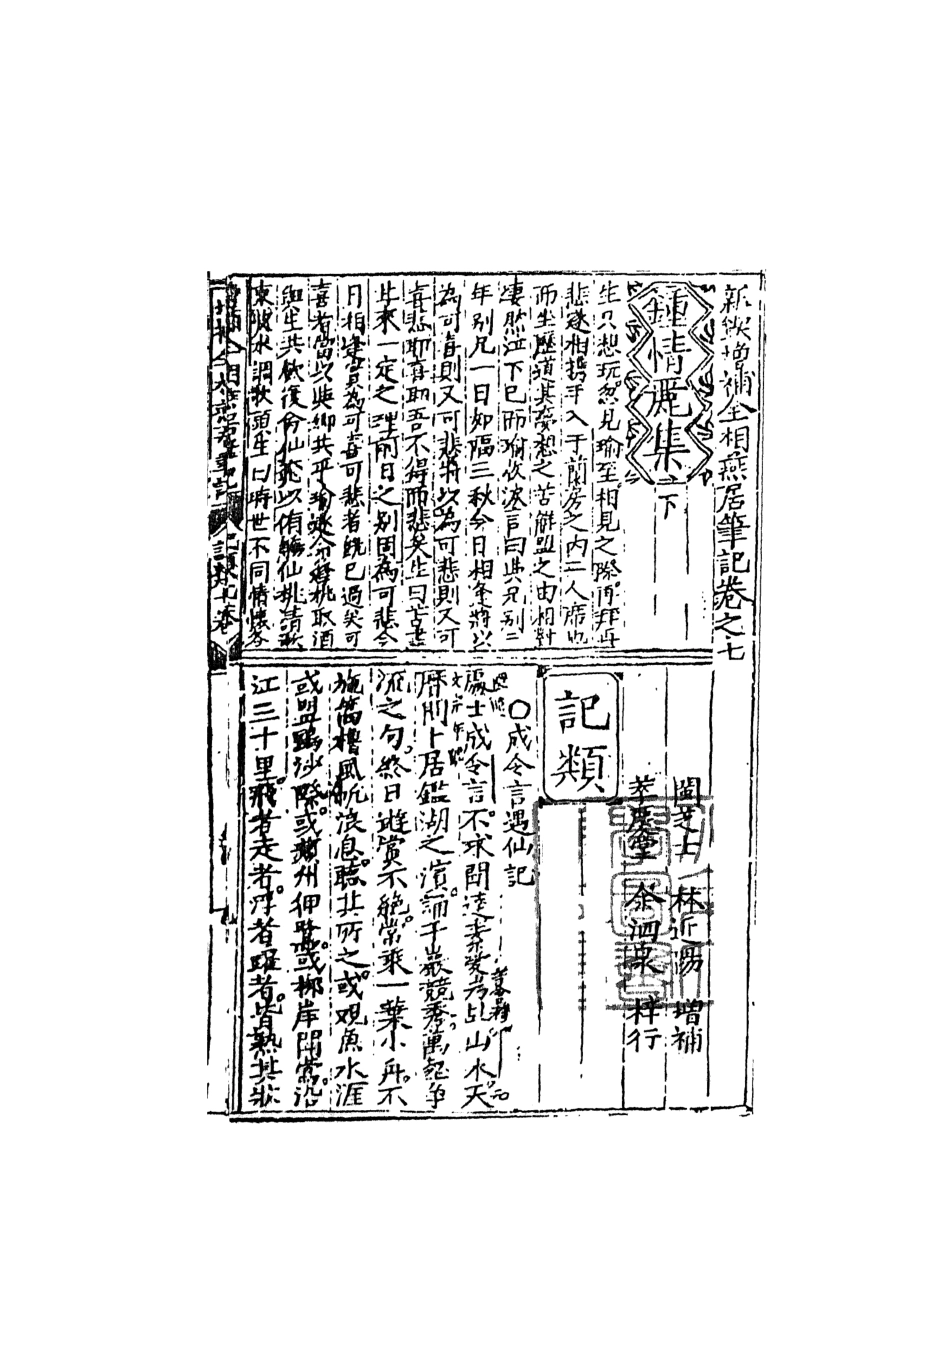 新鍥增補全相燕居筆記卷之七
鍾情麗集 之下
生只想玩忽見瑜至相見之際再拜再
悲遂相携手入于蘭房之内二人席地
而坐歷道其夢想之苦解盟之由相對
凄然泣下已而瑜收淚言曰與兄别二
年别凡一日如隔三秋今日相逢將以
為可喜則又可悲將以為可悲則又可
喜悲耶喜耶吾不得而悲矣生曰否盡
生來一定之理前日之别固為可悲今
月相逢實為可喜可悲者旣已過矣可
喜者當以與卿共乎瑜遂命碧桃取酒
與生共飲後命仙桃以侑觴仙桃請歌
東坡水調歌頭生曰時世不同情懷各
閩芝士 林近陽 增補
萃慶堂 余泗泉 梓行
記類
○成令言遇仙記
處士成令言不求聞達素愛
山水天
曆間卜居鑑湖之濱誦千巖競秀萬壑爭
流之句終日遊賞不絶常乘一葉小舟不
施篙櫓風帆浪息聽其所之或观魚水涯
或盟鷗沙際或蘋洲狎鷺或柳岸聞鶯沿
江三十里飛者走者浮者躍者皆熟其狀